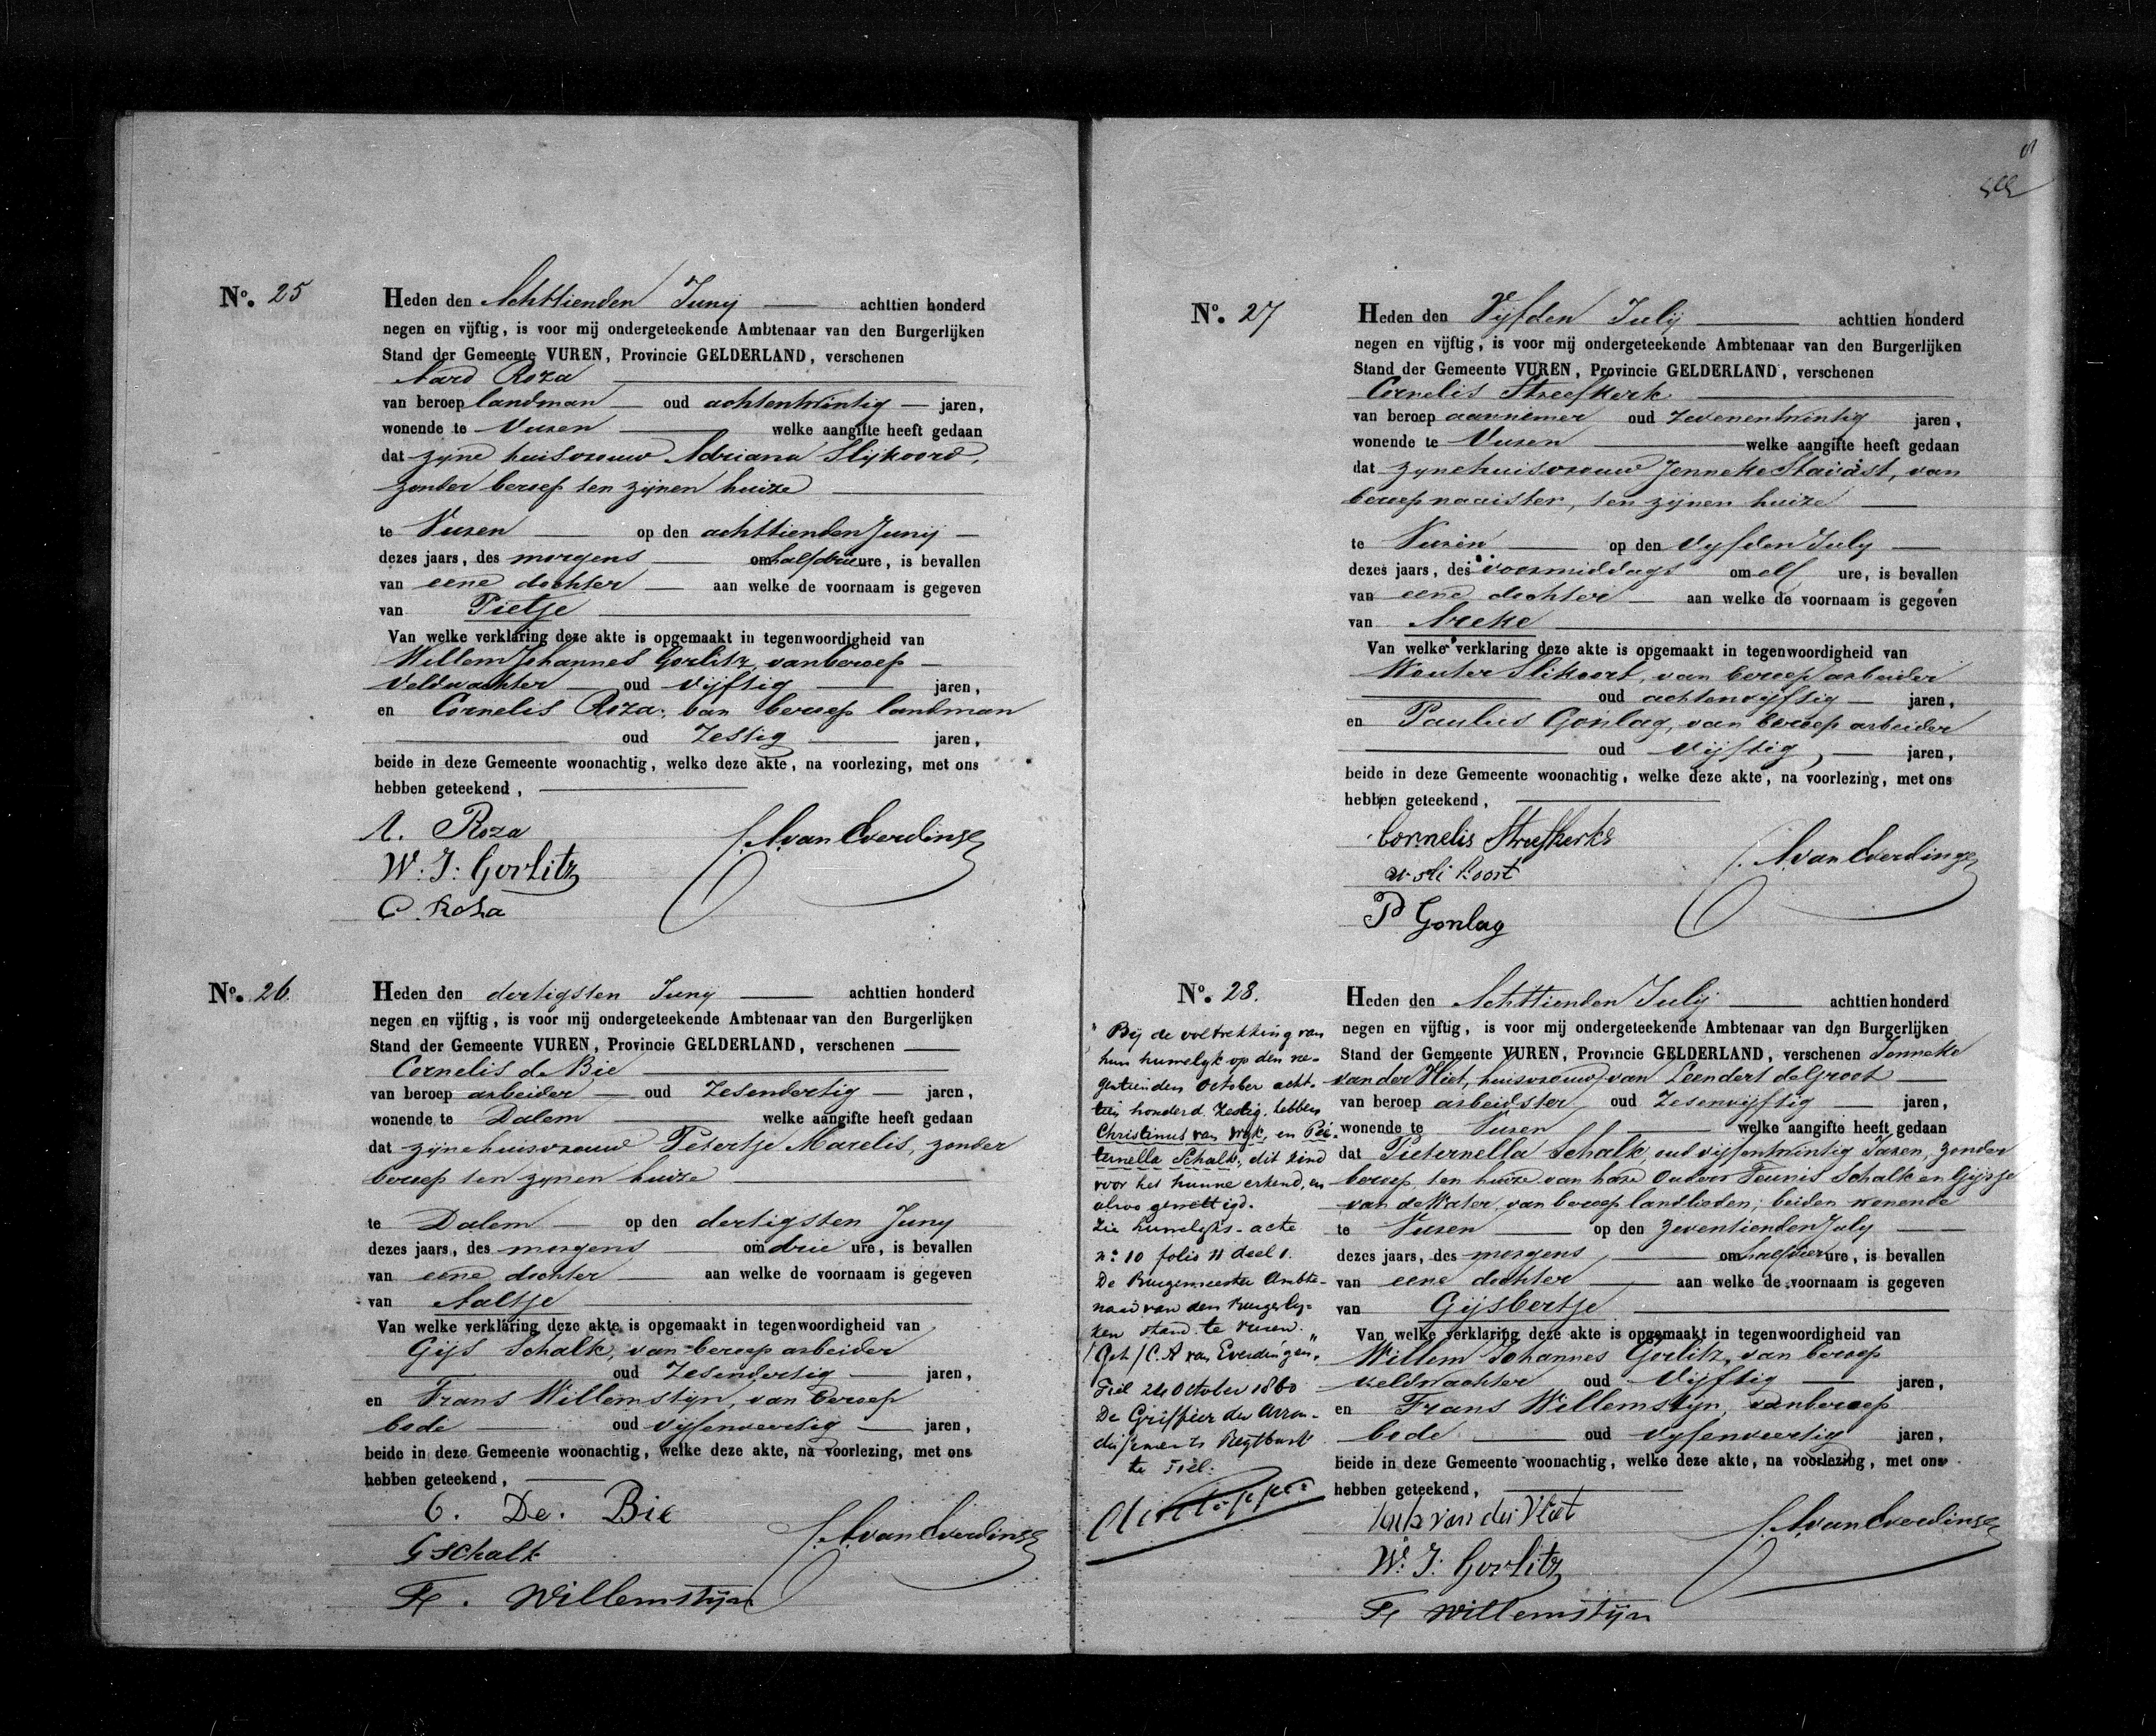 No. 25
Heden den Achttienden Junij achttien honderd
negen en vijftig, is voor mij ondergeteekende Ambtenaar van den Burgerlijken
Stand der Gemeente VUREN, Provincie GELDERLAND, verschenen
Aard Roza
van beroep landman oud achtentwintig jaren,
wonende te Vuren welke aangifte heeft gedaan
dat zijne huisvrouw Adriana Slijkoord,
zonder beroep ten zijnen huize
te Vuren op den achttienden Junij
dezes jaars, des morgens om half drie ure, is bevallen
van eene dochter aan welke de voornaam is gegeven
van Pietje
Van welke verklaring deze akte is opgemaakt in tegenwoordigheid van
Willem Johannes Gorlitz, van beroep
veldwachter oud vijftig jaren,
en Cornelis Roza, van beroep landman
oud zestig jaren,
beide in deze Gemeente woonachtig, welke deze akte, na voorlezing, met ons
hebben geteekend,
A. Roza
C. A. van Everdingen
W. J. Gorlitz
C. Roza
No. 26.
Heden den dertigsten Junij achttien honderd
negen en vijftig, is voor mij ondergeteekende Ambtenaar van den Burgerlijken
Stand der Gemeente VUREN, Provincie GELDERLAND, verschenen
Cornelis de Bie
van beroep arbeider oud zesendertig jaren,
wonende te Dalem welke aangifte heeft gedaan
dat zijne huisvrouw Petertje Marelis, zonder
beroep ten zijnen huize
te Dalem op den dertigsten Junij
dezes jaars, des morgens om drie ure, is bevallen
van eene dochter aan welke de voornaam is gegeven
van Aaltje
Van welke verklaring deze akte is opgemaakt in tegenwoordigheid van
Gijs Schalk, van beroep arbeider
oud zesendertig jaren,
en Frans Willemstijn, van beroep
bode oud vijfenveertig jaren,
beide in deze Gemeente woonachtig, welke deze akte, na voorlezing, met ons
hebben geteekend,
C. De. Bie
C. A. van Everdingen
G Schalk
F. Willemstijn
No. 27
Heden den Vijfden Julij achttien honderd
negen en vijftig, is voor mij ondergeteekende Ambtenaar van den Burgerlijken
Stand der Gemeente VUREN, Provincie GELDERLAND, verschenen
Cornelis Streefkerk
van beroep aannemer oud zevenentwintig jaren,
wonende te Vuren welke aangifte heeft gedaan
dat zijne huisvrouw Jenneke Stavast, van
beroep naaister, ten zijnen huize
te Vuren op den vijfden July
dezes jaars, des voormiddags om elf ure, is bevallen
van eene dochter aan welke de voornaam is gegeven
van Areke
Van welke verklaring deze akte is opgemaakt in tegenwoordigheid van
Wouter Slikoort, van beroep arbeider
oud achtenvijftig jaren,
en Paulus Gonlag, van beroep arbeider
oud vijftig, jaren,
beide in deze Gemeente woonachtig, welke deze akte, na voorlezing, met ons
hebben geteekend,
Cornelis Streefkerk
C. A. van Everdingen
w sli koort
P Gonlag
No. 28.
" Bij de voltrekking van
hun huwelijk op den ne-
gentienden October acht-
tien honderd zestig, hebben
Christinus van Wijk, en Pie-
ternella Schalk, dit kind
voor het hunne erkend, en
alzoo gewettigd.
Zie huwelijks-acte
no 10 folio 11 deel 1.
De Burgemeester Ambte-
naar van den Burgerlij-
ken stand te Vuren.
(Get.) C. A van Everdingen"
Tiel 24 October 1860
De Griffier der Arron-
dissements Regtbank
te Tiel.
Heden den Achttienden Julij achttien honderd
negen en vijftig, is voor mij ondergeteekende Ambtenaar van den Burgerlijken
Stand der Gemeente VUREN, Provincie GELDERLAND, verschenen Jenneke
van der Vliet, huisvrouw van Leendert de Groot
van beroep arbeidster oud zesenvijftig jaren,
wonende te Vuren welke aangifte heeft gedaan
dat Pieternella Schalk, oud vijfentwintig Jaren, zonder
beroep, ten huize van hare Ouders Teunis Schalk en Gijsje
van de Water, van beroep landlieden, beiden wonende
te Vuren op den zeventienden July
dezes jaars, des morgens om half vier ure, is bevallen
van eene dochter aan welke de voornaam is gegeven
van Gijsbertje
Van welke verklaring deze akte is opgemaakt in tegenwoordigheid van
Willem Johannes Gorlitz, van beroep
veldwachter oud vijftig jaren,
en Frans Willemstijn, van beroep
bode oud vijfenveertig jaren,
beide in deze Gemeente woonachtig, welke deze akte, na voorlezing, met ons
hebben geteekend,
van der Vliet
C. A. van Everdingen
W. J. Gorlitz
F Willemstijn